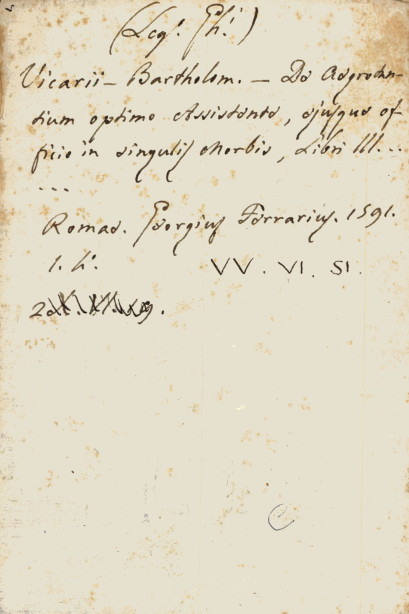 Vicarii — Bartholom. — De Aegrotan-
tium optimo Assistente, ejusque of-
ficio in singulis Morbis, Libri III...
...
Romae. Georgius Ferrarius. 1591.
1. t.
VV. VI. SI.